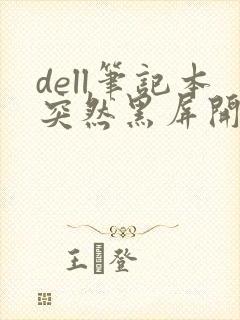 dell筆記本
突然黑屏開
王 登